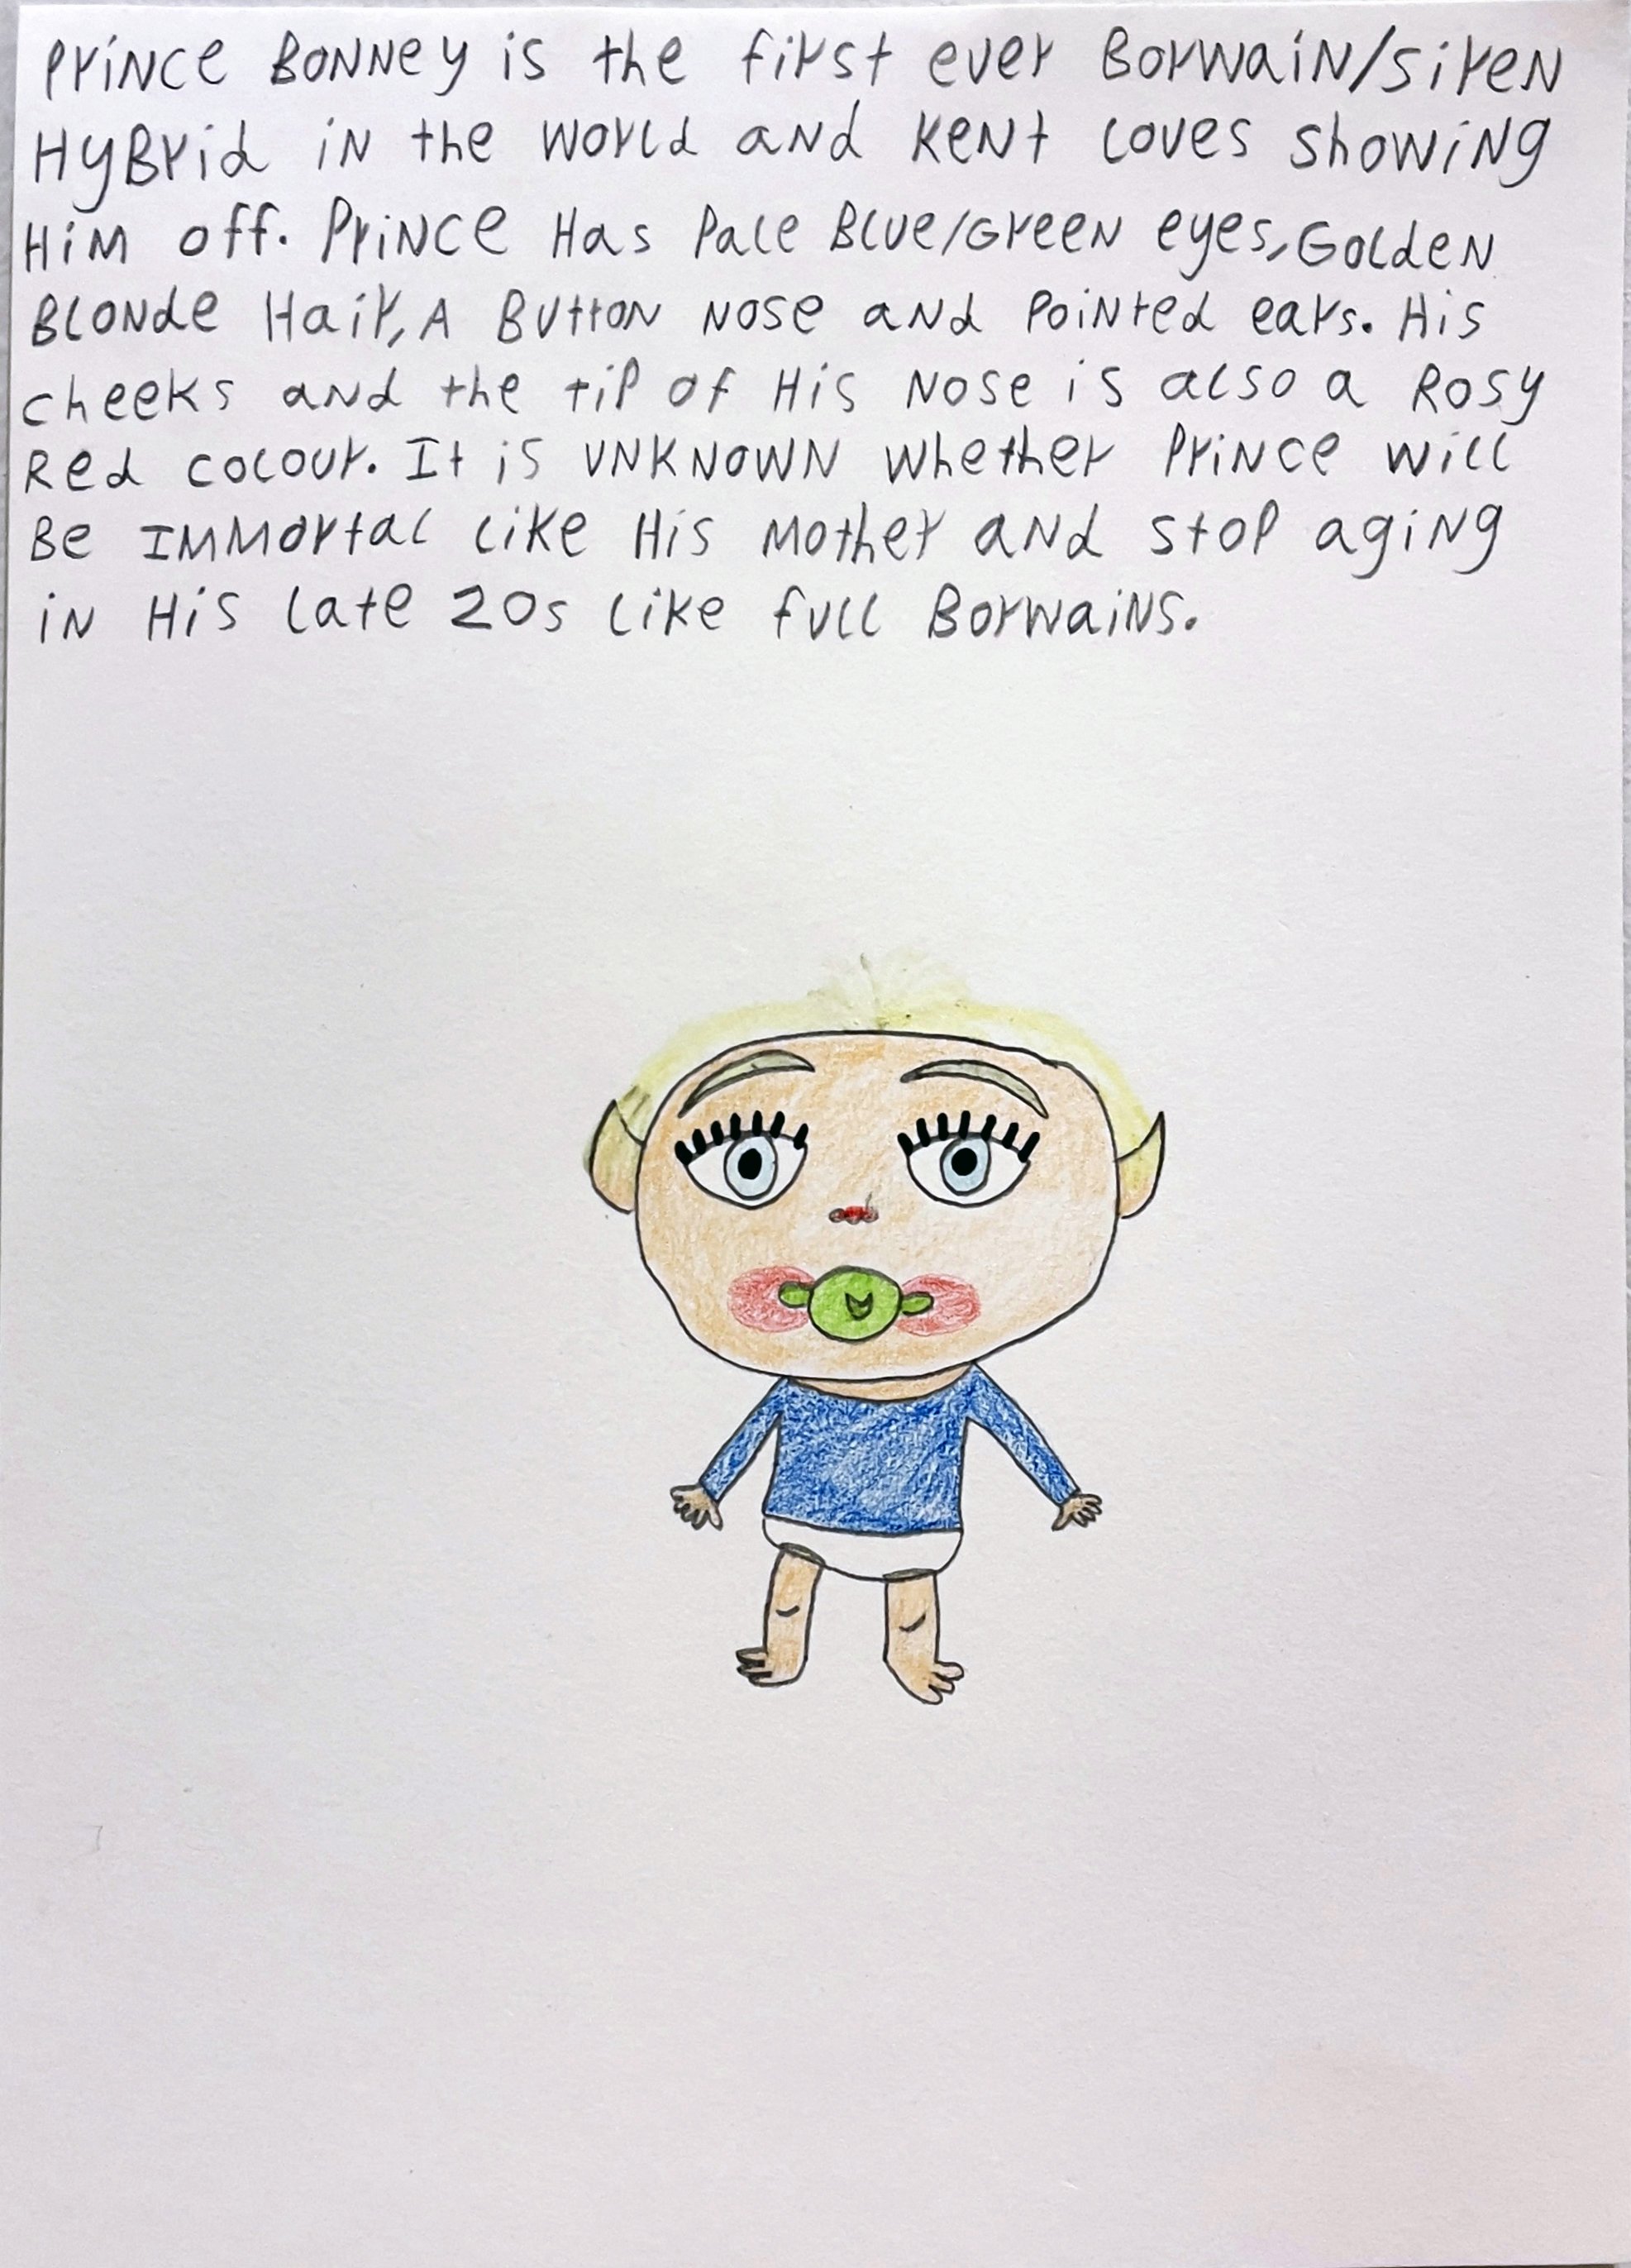 Prince Bonney is the first ever Borwain/siren
Hybrid in the world and Kent loves showing
Him off. Prince Has Pale Blue/Green eyes, Golden
Blonde Hair, A Button Nose and Pointed ears. His
cheeks and the tip of His Nose is also a Rosy
Red colour. It is unknown whether Prince will
Be Immortal like His Mother and stop aging
in His late 20s like full Borwains.